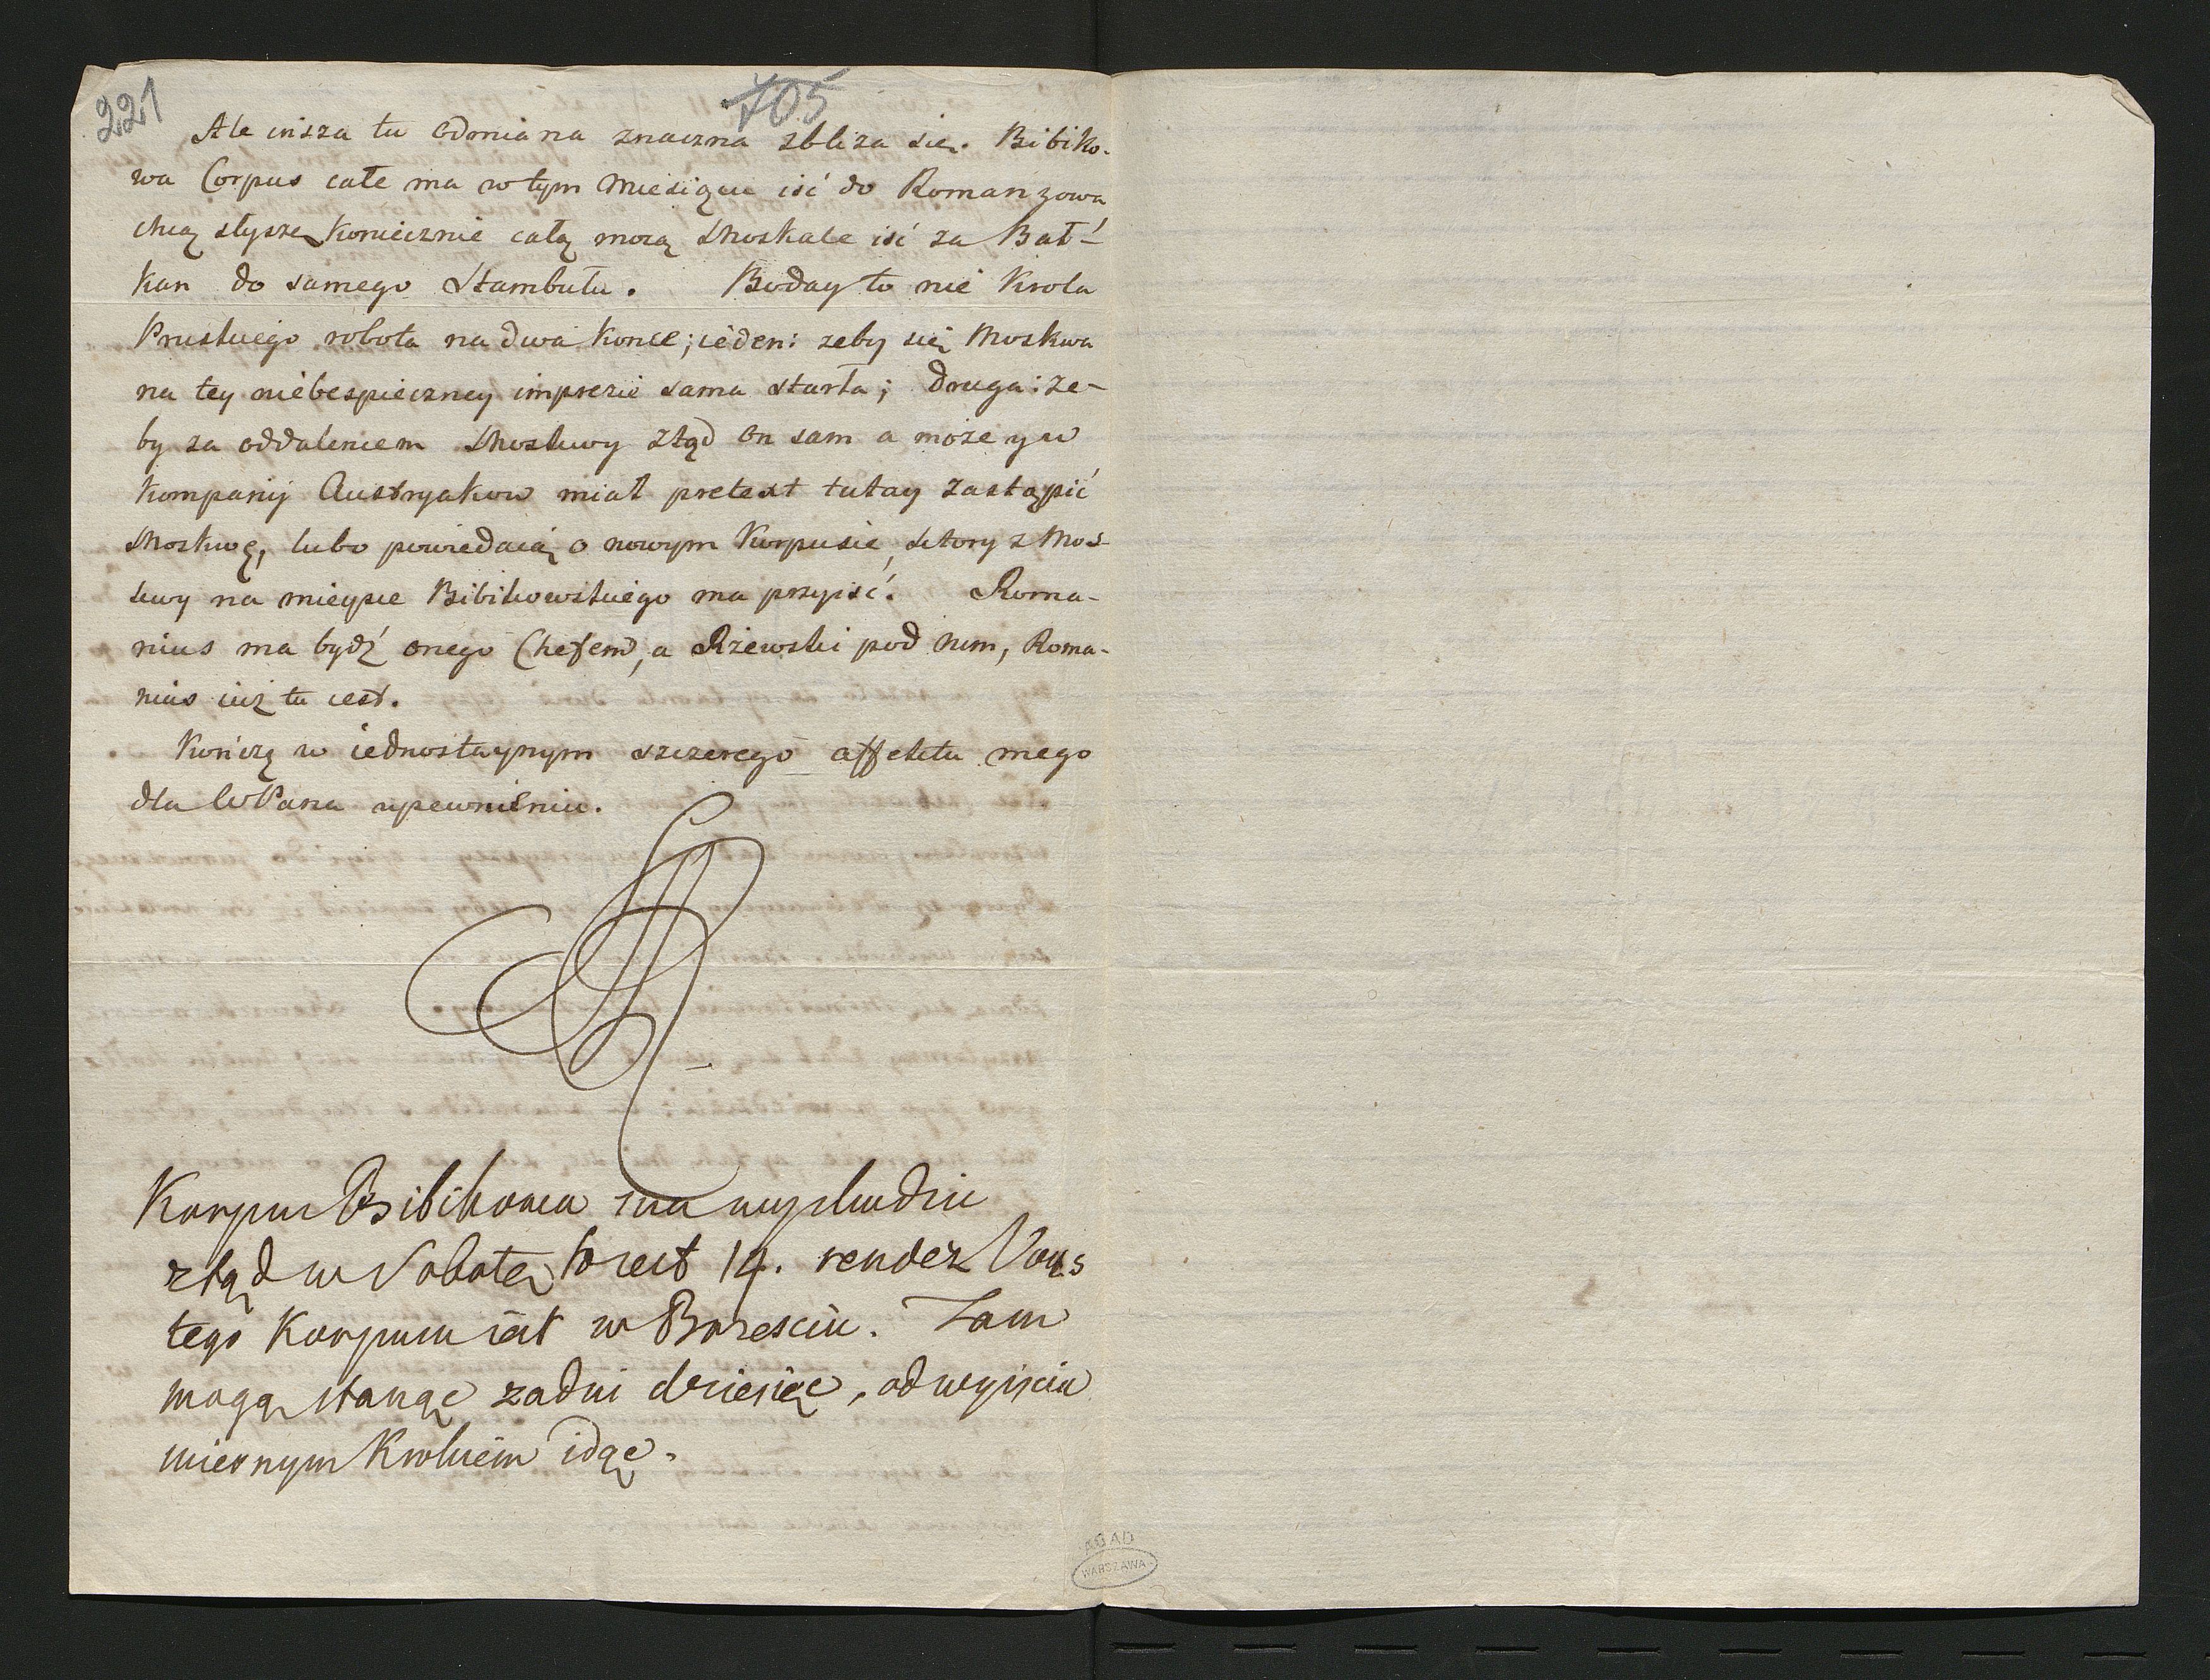 221
705
Ale insza tu odmiana znaczna zbliza się. Bibiko-
wa Corpus całe ma w tym Miesiącu iść do Romanzowa
chcą słyszę koniecznie całą mocą Moskale iść za Bał-
kan do samego Stambułu. Boday to nie Krola
Pruskiego robota na dwa konce; ieden: zeby się Moskwa
na tey niebespieczney imprezie sama starła; druga: ze-
by za oddaleniem Moskwy ztąd on sam a może y w
kompanij Austryakow miał pretext tutay zastąpić
Moskwę, lubo powiedaią o nowym Korpusie, ktory z Mos-
kwy na mieysce Bibikowskiego ma przyiść. Roma-
nius ma bydź onego Chefem, a Rżewski pod nim, Roma-
nius iuż tu iest.
Kończę w iednostaynym szczerego affektu mego
dla WPana upewnieniu.
Korpus Bibikowa ma wychodzic
ztąd w Sobotę to iest 14. rendez Vous
tego Korpusu iest w Brzesciu. Tam
mogą stanąc za dni dziesięc, od wyiscia
miernym Krokiem idąc.
AGAD
WARSZAWA